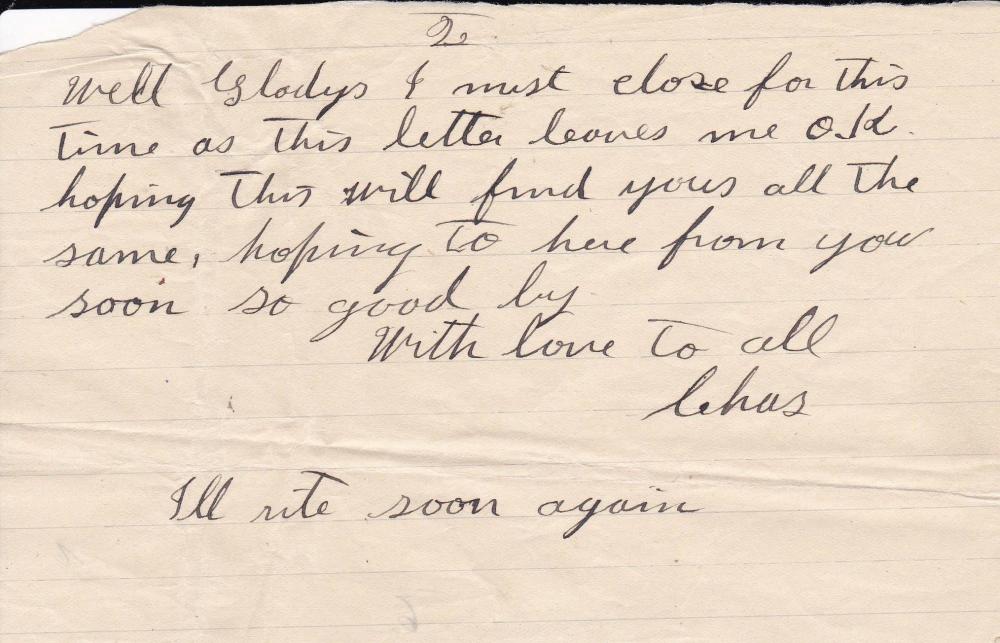 2
Well Gladys I must close for this
time as this letter leaves me O.K.
hoping this will find yous all the
same, hoping to here from you
soon so good by
With love to all
Chas
I'll rite soon again